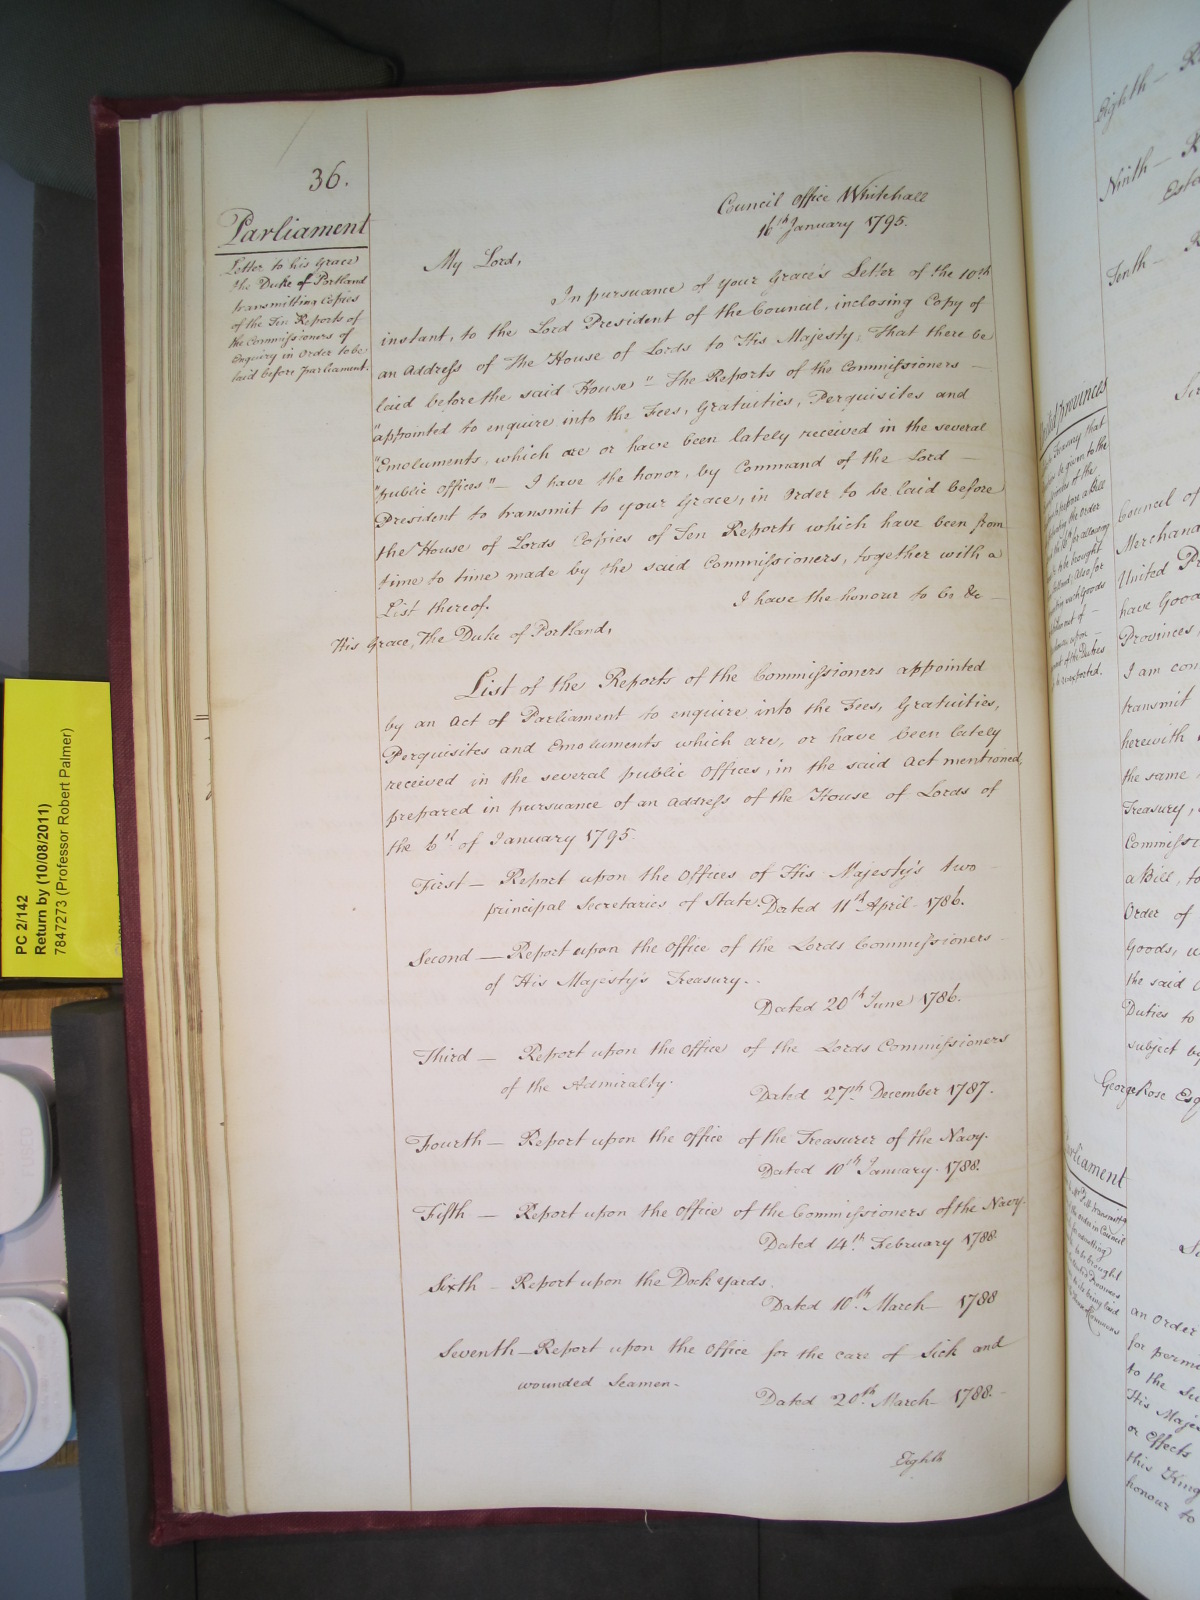 36.
Parliament
Letter to his Grace
the Duke of Portland
transmitting Copies
of the Ten Reports of
the Commissioners of
Enquiry in Order to be
laid before Parliament.
Council Office Whitehall
16th January 1795.
My Lord,
In pursuance of your Grace's Letter of the 10th
instant, to the Lord President of the Council, inclosing Copy of
an Address of the House of Lords to His Majesty, That there be
laid before the said House "The Reports of the Commissioners
"appointed to enquire into the Fees, Gratuities, Perquisites and
"Emoluments, which are or have been lately received in the several
"public Offices" — I have the honor, by Command of the Lord
President to transmit to your Grace, in Order to be laid before
the House of Lords Copies of Ten Reports which have been from
time to time made by the said Commissioners, together with a
List thereof.
I have the honour to be &c
His Grace, the Duke of Portland,
List of the Reports of the Commissioners appointed
by an Act of Parliament to enquire into the Fees, Gratuities,
Perquisites and Emoluments which are, or have been lately
received in the several public Offices, in the said Act mentioned,
prepared in pursuance of an Address of the House of Lords of
the 6th of January 1795.
First — Report upon the Offices of His Majesty's two
principal Secretaries of State. Dated 11th April 1786.
Second — Report upon the Office of the Lords Commissioners
of His Majesty's Treasury.
Dated 20th June 1786.
Third — Report upon the Office of the Lords Commissioners
of the Admiralty.
Dated 27th December 1787.
Fourth — Report upon the Office of the Treasurer of the Navy.
Dated 10th January 1788.
Fifth — Report upon the Office of the Commissioners of the Navy.
Dated 14th February 1788.
Sixth — Report upon the Dock yards.
Dated 10th March 1788
Seventh — Report upon the Office for the care of Sick and
wounded Seamen.
Dated 20th March 1788.
Eighth
PC 2/142
Return by (10/08/2011)
7847273 (Professor Robert Palmer)
Eighth —
Ninth —
Tenth —
Council of
Merchand
United Pr
have Good
Provinces,
I am con
transmit
herewith
the same
Treasury,
Commissi
a Bill, to
Order of
Goods, w
the said
Duties to
subject by
George Rose Esq
arliament
an Order
for permi
to the
His Maje
or Effects
this King
honour to